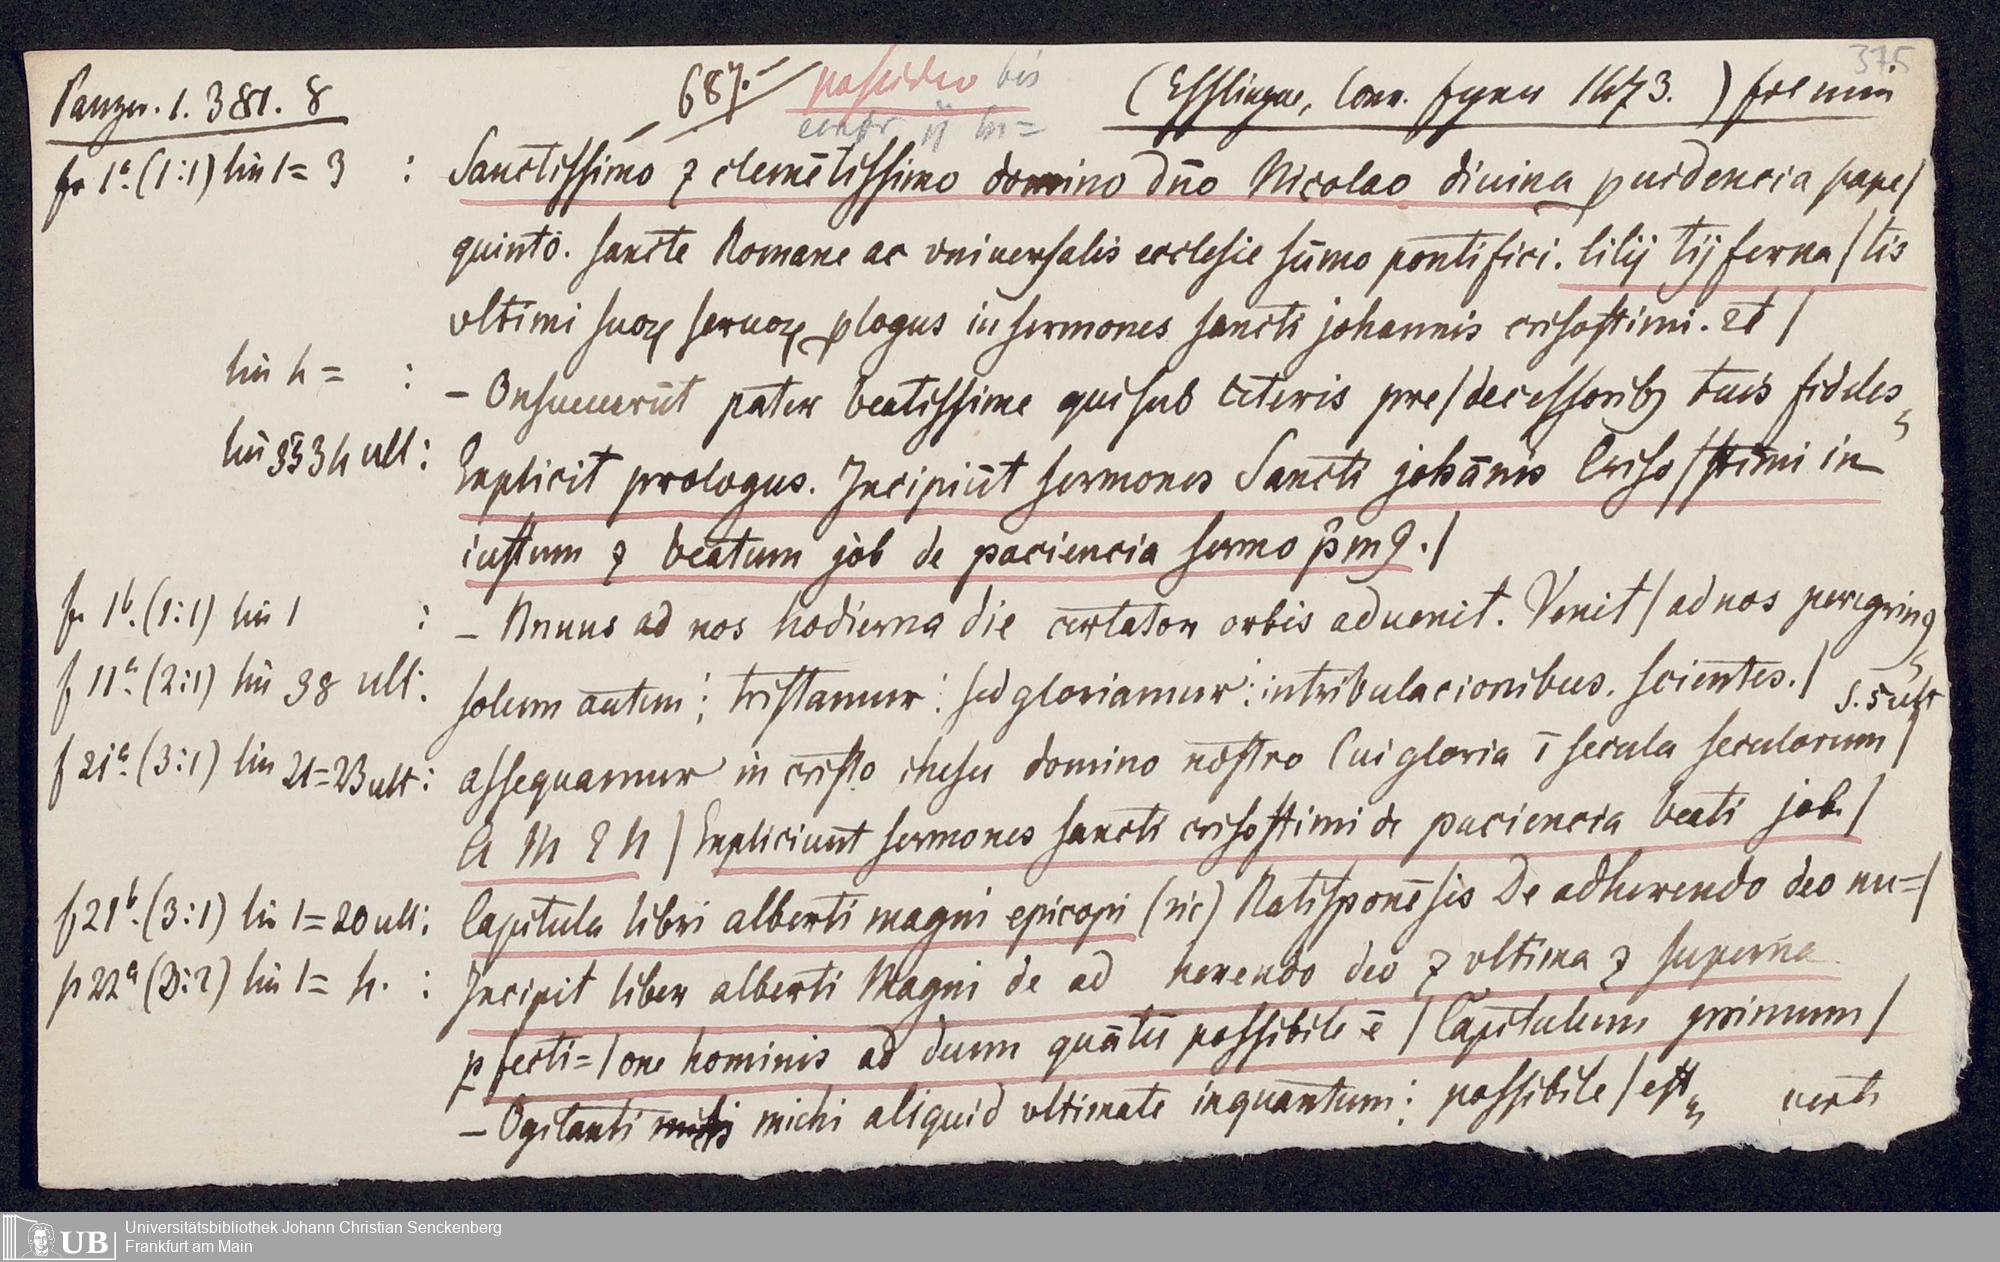 375
Panzer. 1. 381. 8 687. possideo bis (Esslingae, Conr. fyner 1473.) fol min
f 1a. (1:1) lin 1=3 : Sanctissimo ⁊ clemētissimo domino dn̄o Nicolao diuina puidencia pape/
quinto. sancte Romane ac vniuersalis ecclesie sūmo pontifici. lilij tijferna/tis
vltimi suoꝝ seruoꝝ plogus in sermones sancti johannis crisostimi. et /
lin 4= : – Onsueuerūt pater beatissime qui sub ceteris pre/decessoribꝫ tuis fideles
lin 33 34 ult: Explicit prologus. Incipiūt sermones Sancti johānis Criso/stimi in
iustum ⁊ beatum job de paciencia sermo p̄mꝯ./
f 1b. (1:1) lin 1 : – Nnuus ad nos hodierna die certator orbis aduenit. Venit/ ad nos peregrinꝯ
f 11a. (2:1) lin 38 ult: solum autem: tristamur: sed gloriamur: in tribulacionibus. scientes./ s. 5 ult
f 21a. (3:1) lin 21=23 ult: assequamur in cristo ihesu domino nostro Cui gloria ī secula seculorum/
A M E N / Expliciunt sermones sancti crisostimi de paciencia beati job./
f 21b. (3:1) lin 1=20 ult: Capitula libri alberti magni epicopi (sic) Ratisponēsis De adherendo deo nu=/
f 22a (3:2) lin 1= 4. : Incipit liber alberti Magni de ad herendo deo ⁊ vltima ⁊ superna
ꝑfecti=/one hominis ad deum quātū possibile ē / Capitulum primum/
– Ogitanti michi aliquid vltimate inquantum: possibile/est verti
Universitätsbibliothek Johann Christian Senckenberg
UB Frankfurt am Main